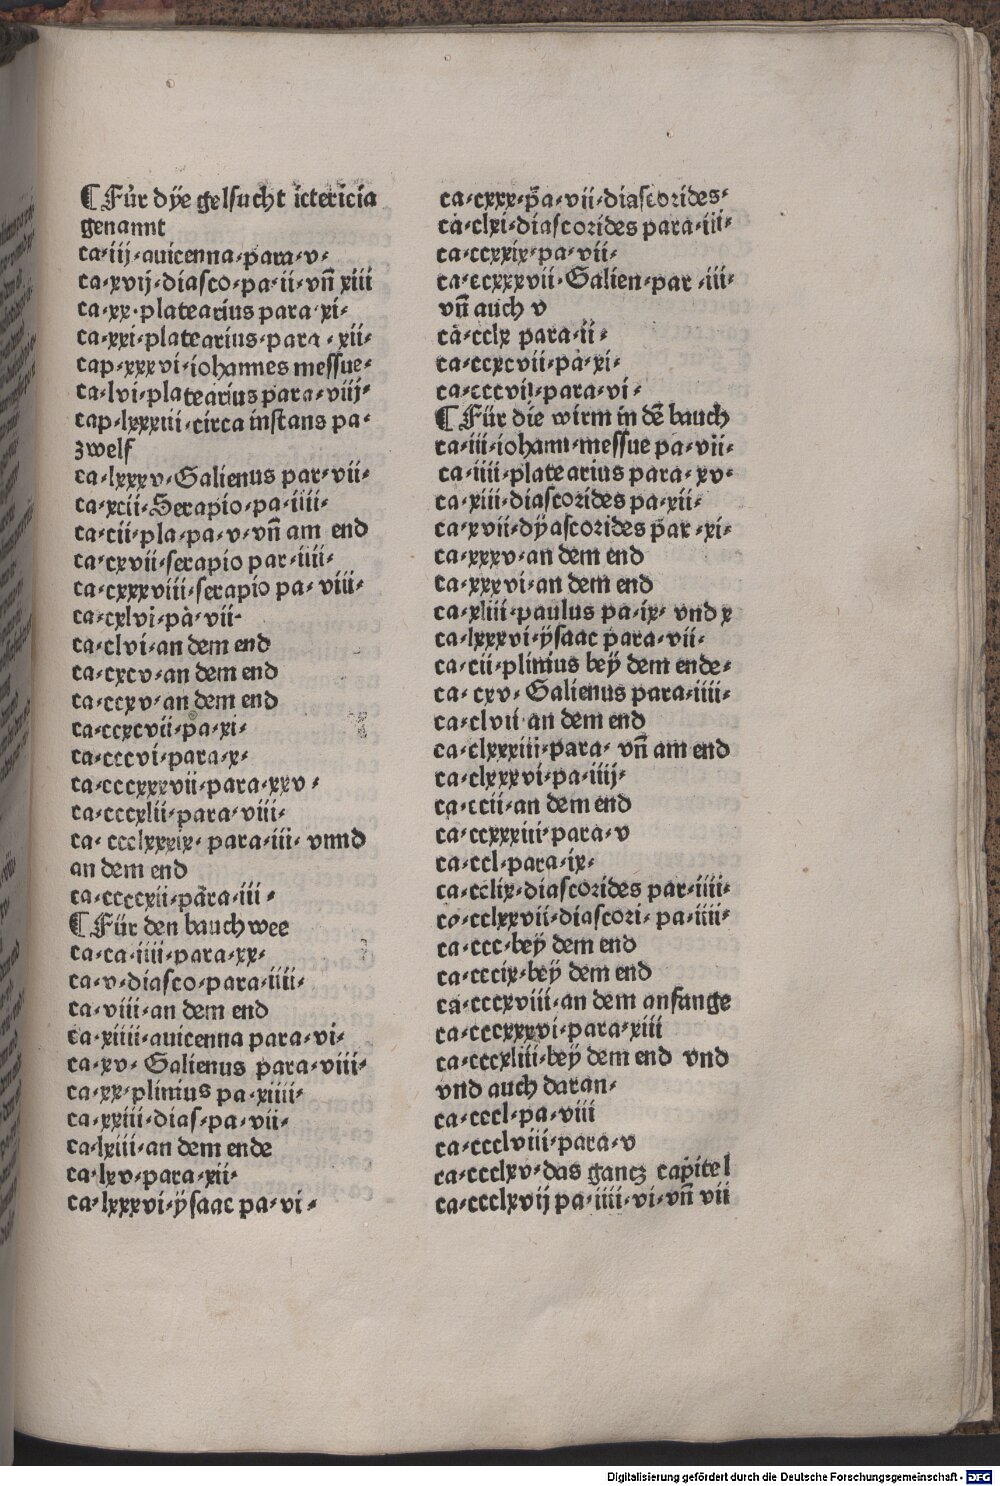 ¶Für dÿe gelsucht ictericia
genannt
ca·iij·auicenna·para·v·
ca·xvij·diasco·pa·ii·vn̄ xiii
ca·xx·platearius para·xi·
ca·xxi·platearius·para·xii·
cap·xxxvi·iohannes messue·
ca·lvi·platearius para·viij·
cap·lxxxiii·circa instans pa·
zwelf
ca·lxxxv·Galienus par·vii·
ca·xcii·Serapio·pa·iiii·
ca·cii·pla·pa·v·vn̄ am end
ca·cxvii·serapio par·iiii·
ca·cxxxviii·serapio pa·viii·
ca·cxlvi·pa·vii·
ca·clvi·an dem end
ca·cxcv·an dem end
ca·ccxv·an dem end
ca·ccxcvii·pa·xi·
ca·cccvi·para·x·
ca·cccxxxvii·para·xxv·
ca·cccxlii·para·viii·
ca·ccclxxxix·para·iii·vnnd
an dem end
ca·ccccxii·para·iii·
¶Für den bauchwee
ca·ca·iiii·para·xx·
ca·v·diasco·para·iiii·
ca·viii·an dem end
ca·xiiii·auicenna para·vi·
ca·xv·Galienus para·viii·
ca·xx·plinius pa·xiiii·
ca·xxiii·dias·pa·vii·
ca·lxiii·an dem ende
ca·lxv·para·xii·
ca·lxxxvi·ÿsaac pa·vi·
ca·cxxx·pa·vii·diascorides·
ca·clxi·diascorides para·iii·
ca·ccxxix·pa·vii·
ca·ccxxxvii·Galien·par·iii·
vn̄ auch v
ca·cclx para·ii·
ca·ccxcvii·pa·xi·
ca·cccvii·para·vi·
¶Für die wirm in dē bauch
ca·iii·iohann·messue pa·vii·
ca·iiii·platearius para·xv·
ca·xiii·diascorides pa·xii·
ca·xvii·dÿascorides par·xi·
ca·xxxv·an dem end
ca·xxxvi·an dem end
ca·xliii·paulus pa·ix·vnd x
ca·lxxxvi·ÿsaac para·vii·
ca·cii·plinius beÿ dem ende·
ca·cxv·Galienus para·iiii·
ca·clvii·an dem end
ca·clxxxiii·para·vn̄ am end
ca·clxxxvi·pa·iiij·
ca·ccii·an dem end
ca·ccxxxiii·para·v
ca·ccl·para·ix·
ca·cclix·diascorides par·iiii·
ca·cclxxvii·diascori·pa·iiii·
ca·ccc·beÿ dem end
ca·cccix·beÿ dem end
ca·cccxviii·an dem anfange
ca·cccxxxvi·para·xiii
ca·cccxliii·beÿ dem end vnd
vnd auch daran·
ca·cccl·pa·viii
ca·ccclviii·para·v
ca·ccclxv·das gancz capitel
ca·ccclxvij pa·iiii·vi·vn̄ vii
Digitalisierung gefördert durch die Deutsche Forschungsgemeinschaft - DFG